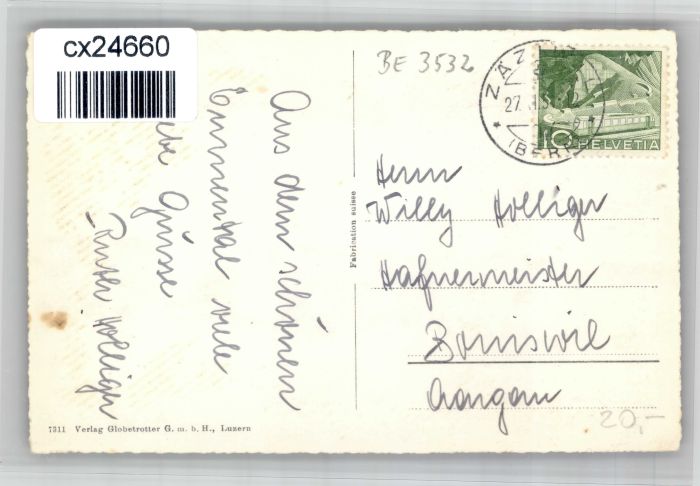 cx24660
BE 3532
ZÄZI
27.
(BERN
10 HELVETIA
Aus dem schönen
Emmental viele
liebe Grüsse
Ruth Holliger
Herrn
Willy Holliger
Hafnermeister
Boniswil
Aargau
20,-
Fabrication suisse
7311 Verlag Globetrotter G. m. b. H., Luzern